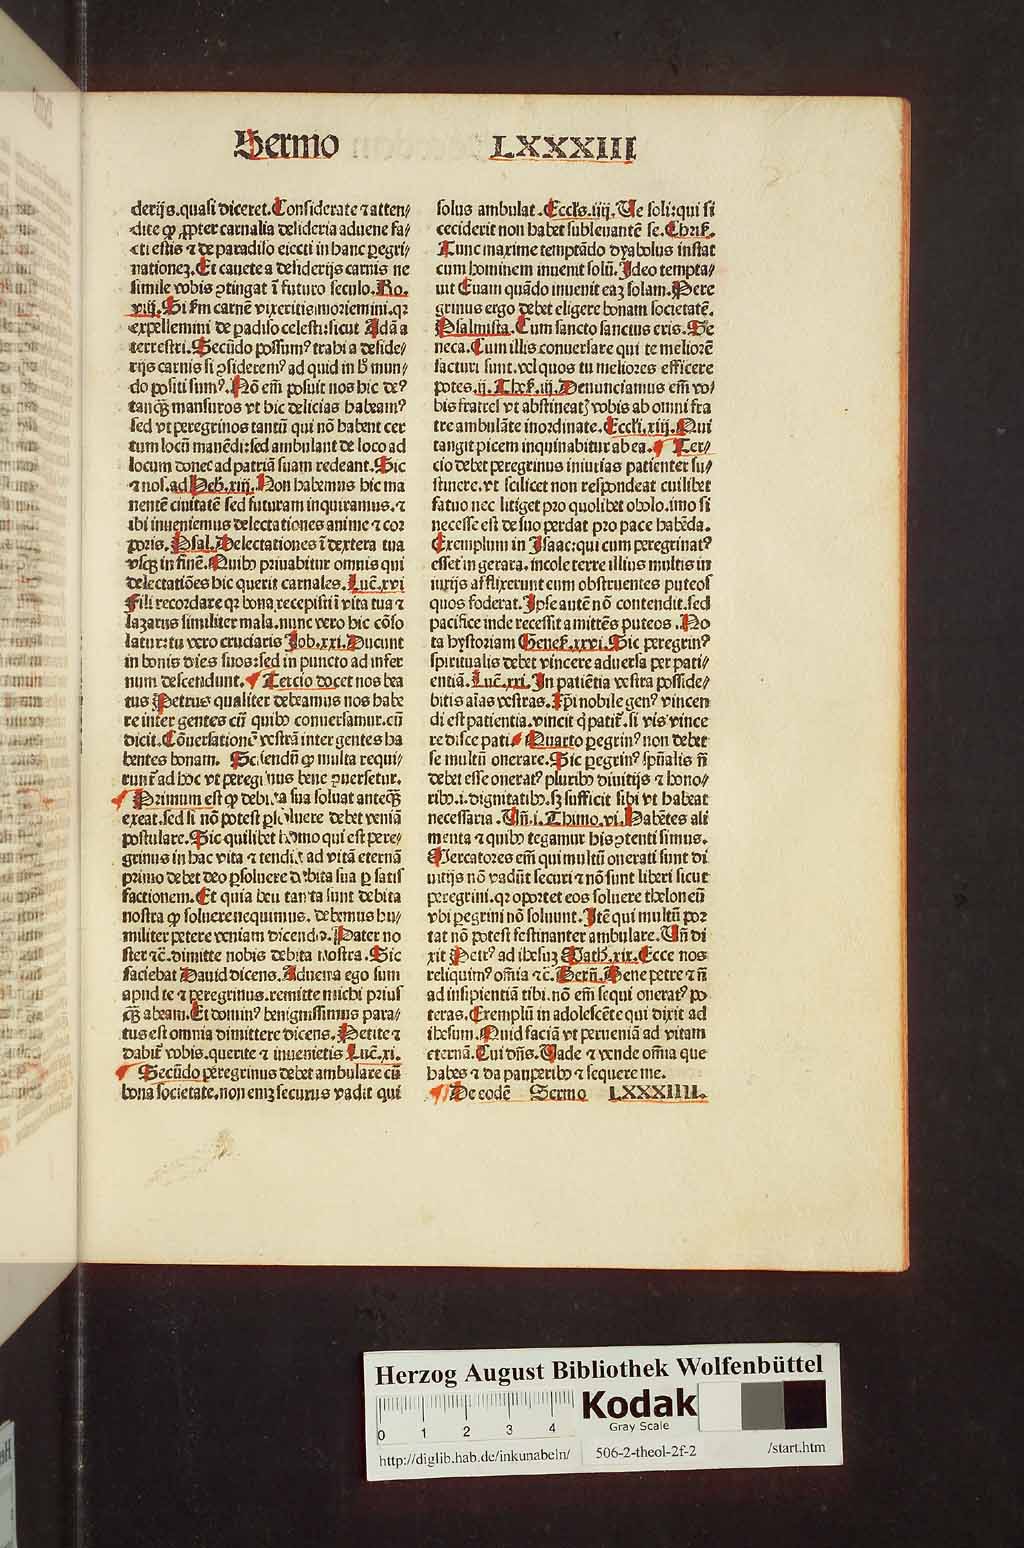 Sermo LXXXIII
derijs.quasi diceret.Considerate ⁊ atten⸗
dite ꝙ ꝓpter carnalia desideria aduene fa⸗
cti estis ⁊ de paradiso eiecti in hanc ꝑegri⸗
nationeꝫ.Et cauete a desiderijs carnis ne
simile vobis ↄtingat ī futuro seculo.Ro.
viij.Si ẜm carnē vixeritis moriemini.qꝛ
expellemini de padiso celesti:sicut Adā a
terrestri.Secūdo possumꝰ trahi a deside⸗
rijs carnis si ↄsideremꝰ ad quid in hͦ mun⸗
do positi sumꝰ.Nō em̄ posuit nos hic deꝰ
tanqꝫ mansuros vt hic delicias habeamꝰ
sed vt peregrinos tantū qui nō habent cer
tum locū manēdi:sed ambulant de loco ad
locum donec ad patriā suam redeant.Sic
⁊ nos.ad Heb.xiij.Non habemus hic ma
nentē ciuitatē sed futuram inquiramus.⁊
ibi inueniemus delectationes anime ⁊ cor
poris.Psal.Delectationes ī dextera tua
vsqꝫ in finē.Quibꝰ priuabitur omnis qui
delectatiōes hic querit carnales.Luc̄.xvi
Fili recordare qꝛ bona recepisti ī vita tua ⁊
lazarus similiter mala.nunc vero hic cōso
latur:tu vero cruciaris Job.xxi.Ducunt
in bonis dies suos:sed in puncto ad infer
num descendunt. Tercio docet nos bea
tus Petrus qualiter debeamus nos habe
re inter gentes cū quibꝰ conuersamur.cū
dicit.Cōuersationē vestrā inter gentes ha
bentes bonam. Sciendū ꝙ multa requi⸗
runt̄ ad hoc vt peregrinus bene ↄuersetur.
Primum est ꝙ debita sua soluat anteqꝫ
exeat.sed si nō potest ꝑsoluere debet veniā
postulare.Sic quilibet homo qui est pere⸗
grinus in hac vita ⁊ tendit ad vitā eternā
primo debet deo ꝑsoluere debita sua ꝑ satis
factionem.Et quia heu tanta sunt debita
nostra ꝙ soluere nequimus.debemus hu⸗
militer petere veniam dicendo.Pater no
ster ⁊c̄.dimitte nobis debita nostra.Sic
faciebat Dauid dicens.Aduena ego sum
apud te ⁊ peregrinus.remitte michi prius
qꝫ abeam.Et dominꝰ benignissimus para⸗
tus est omnia dimittere dicens.Petite ⁊
dabit̄ vobis.querite ⁊ inuenietis Luc̄.xi.
Secūdo peregrinus debet ambulare cū
bona societate.non emꝫ securus vadit qui
solus ambulat.Eccl̄s.iiij.Ve soli:qui si
ceciderit non habet subleuantē se.Chriẜ.
Tunc maxime temptādo dyabolus instat
cum hominem inuenit solū.Ideo tempta⸗
uit Euam quādo inuenit eaꝫ solam.Pere
grinus ergo debet eligere bonam societatē.
Psalmista.Cum sancto sanctus eris.Se
neca.Cum illis conuersare qui te meliorē
facturi sunt.vel quos tu meliores efficere
potes.ij.Theẜ.iij.Denunciamus em̄ vo⸗
bis fratres vt abstineatꝭ vobis ab omni fra
tre ambulāte inordinate.Eccl̄i.xiij.Qui
tangit picem inquinabitur ab ea. Ter⸗
cio debet peregrinus iniurias patienter su⸗
stinere.vt scilicet non respondeat cuilibet
fatuo nec litiget pro quolibet obolo.imo si
necesse est de suo perdat pro pace habēda.
Exemplum in Isaac:qui cum peregrinatꝰ
esset in gerara.incole terre illius multis in
iurijs afflixerunt eum obstruentes puteos
quos foderat.Ipse autē nō contendit.sed
pacifice inde recessit amittēs puteos.No
ta hystoriam Geneẜ.xxvi.Sic peregrinꝰ
spiritualis debet vincere aduersa per pati⸗
entiā.Luc̄.xxi.In patiētia vestra posside⸗
bitis aīas vestras.Ip̄i nobile genꝰ vincen
di est patientia.vincit q̇ patit̄.si vis vince
re disce pati. Quarto ꝑegrinꝰ non debet
se multū onerare.Sic ꝑegrinꝰ sp̄nalis n̄
debet esse oneratꝰ pluribꝰ diuitijs ⁊ hono⸗
ribꝰ.i.dignitatibꝰ.sꝫ sufficit sibi vt habeat
necessaria.Vn̄.i.Thimo.vi.Habētes ali
menta ⁊ quibꝰ tegamur his ↄtenti simus.
Mercatores em̄ qui multū onerati sunt di
uitijs nō vadūt securi ⁊ nō sunt liberi sicut
peregrini.qꝛ oportet eos soluere theloneū
vbi ꝑegrini nō soluunt.Itē qui multū por
tat nō potest festinanter ambulare.Vn̄ di
xit Petrꝰ ad ihesuꝫ Math̄.xix.Ecce nos
reliquimꝰ om̄ia ⁊c̄.Bern̄.Bene petre ⁊ n̄
ad insipientiā tibi.nō em̄ sequi oneratꝰ po
teras.Exemplū in adolescēte qui dixit ad
ihesum.Quid faciā vt perueniā ad vitam
eternā.Cui dn̄s.Vade ⁊ vende om̄ia que
habes ⁊ da pauperibꝰ ⁊ sequere me.
De eodē Sermo LXXXIIII.
Herzog August Bibliothek Wolfenbüttel
0 1 2 3 4
Kodak
Gray Scale
http://diglib.hab.de/inkunabeln/ 506-2-theol-2f-2 /start.htm